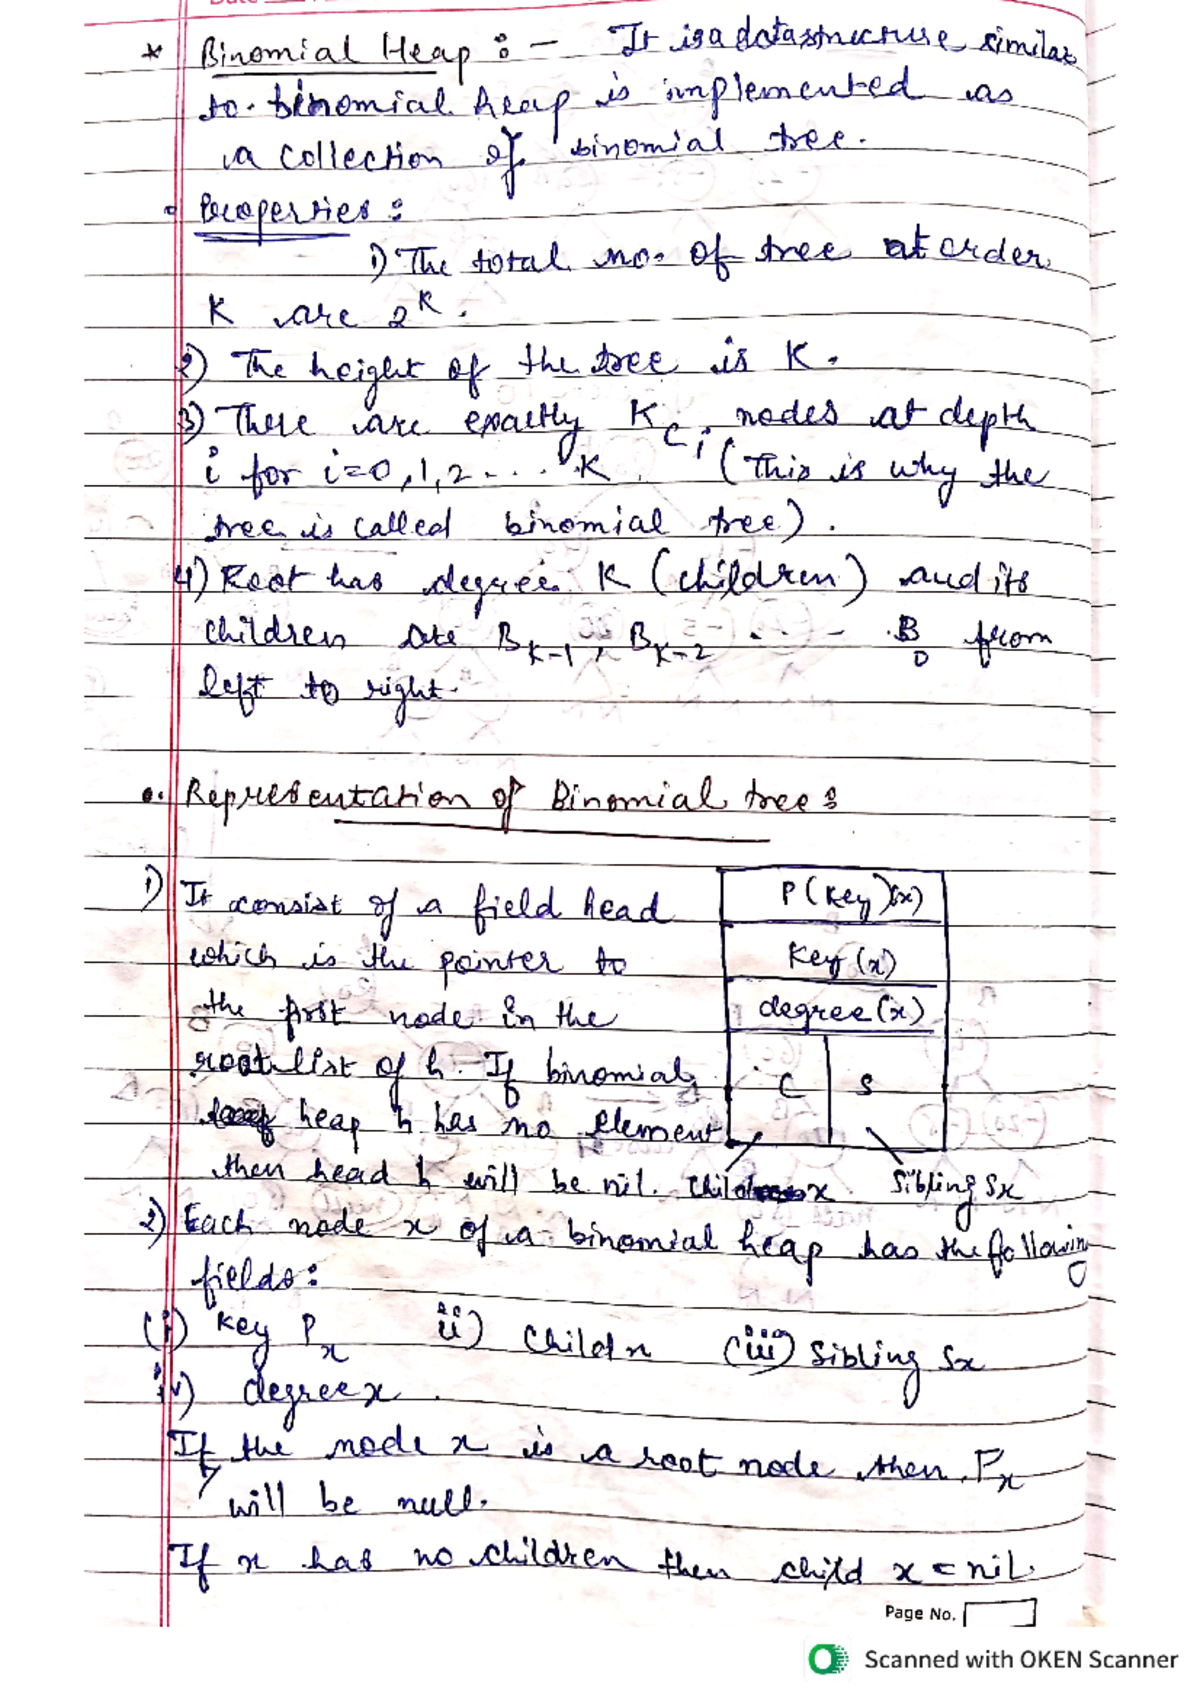 * Binomial Heap :- It is a datastructure similar
to binomial heap is implemented as
a collection of binomial tree.
Properties :
1) The total no. of tree at order
K are 2^K.
2) The height of the tree is K.
3) There are exactly K_C_i nodes at depth
i for i=0,1,2 - . . . K. (This is why the
tree is called binomial tree).
4) Root has degree K (children) and its
children are B_K-1, B_K-2 - - - B_0 from
left to right.
Representation of Binomial tree :
1) It consist of a field head
which is the pointer to
the first node in the
root list of h. If binomial
heap h has no element
then head h will be nil.
P(key)(x)
Key (x)
degree (x)
C S
Child x Sibling Sx
2) Each node x of a binomial heap has the following
fields :
(i) Key Px ii) Child x (iii) Sibling Sx
iv) degree x.
If the node x is a root node then Px
will be null.
If x has no children then child x = nil.
Page No.
Scanned with OKEN Scanner